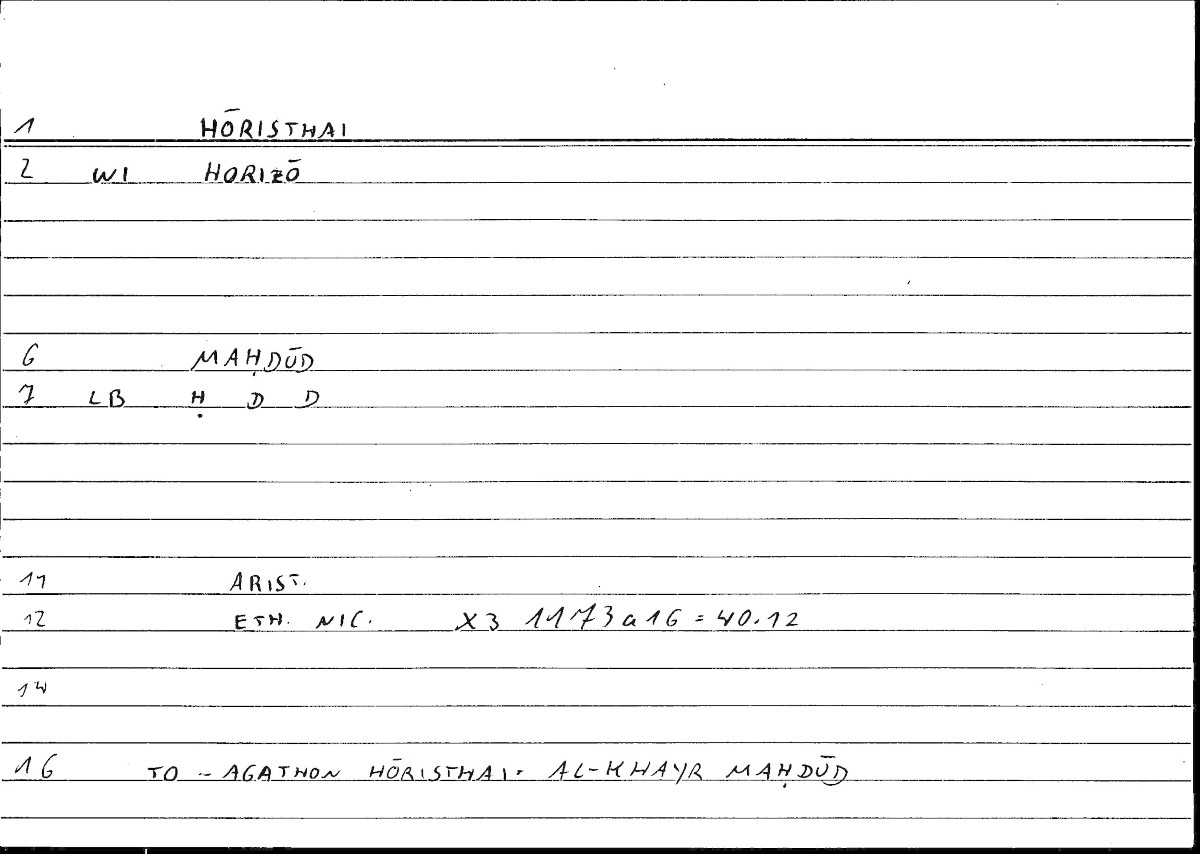 1 HŌRISTHAI
2 WI HORIZŌ
6 MAḤDŪD
7 LB Ḥ D D
11 ARIST.
12 ETH. NIC. X3 1173a16 = 40.12
14
16 TO - AGATHON HŌRISTHAI. AL-KHAYR MAḤDŪD